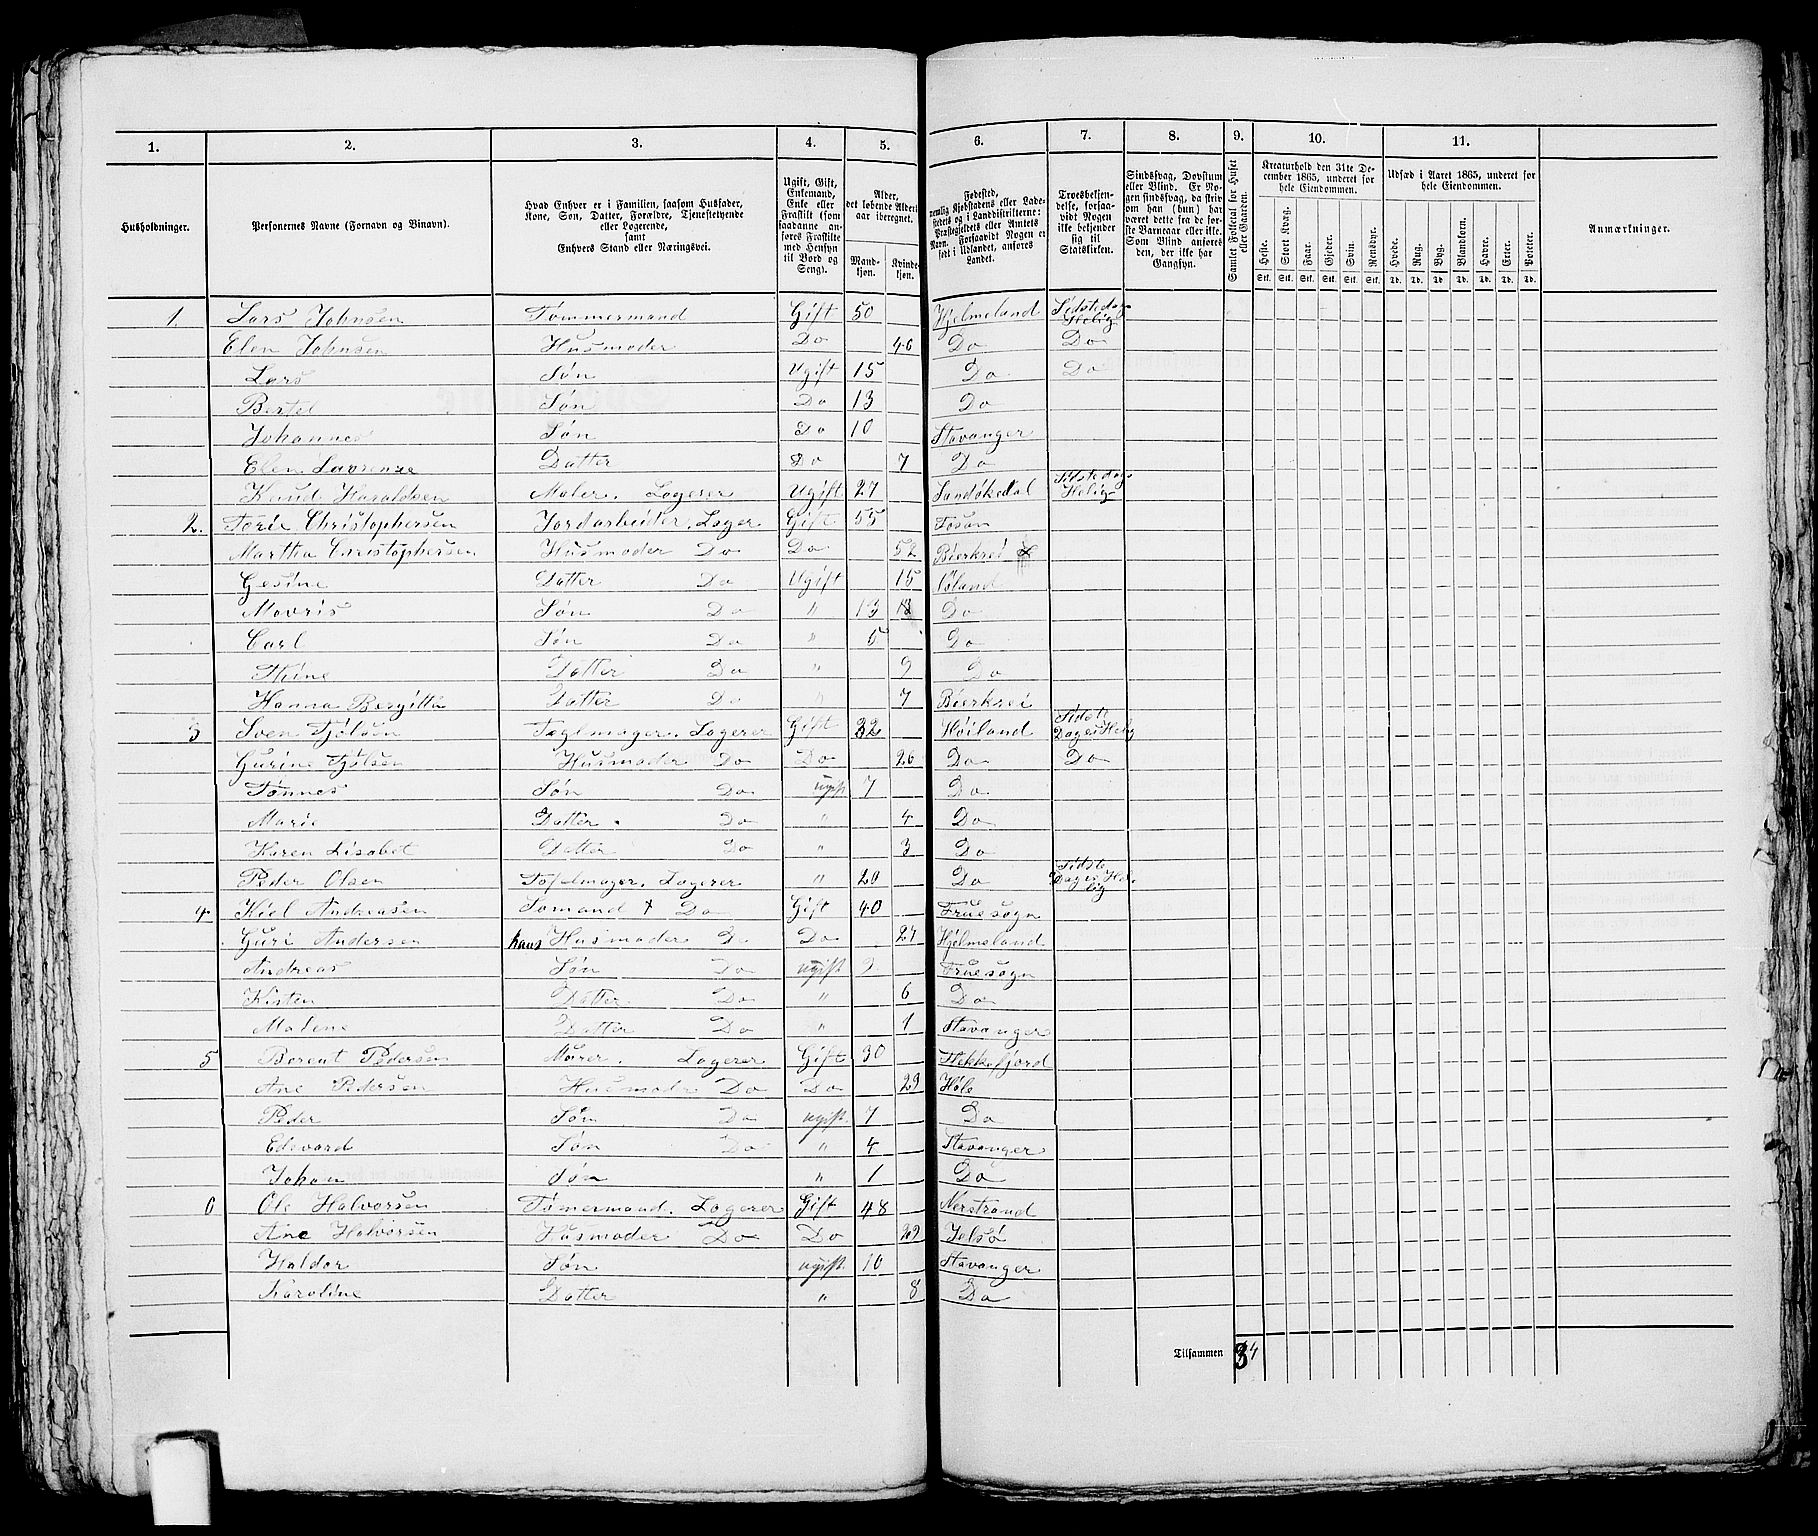 1. 2. 3. 4. 5. 6. 7. 8. 9. 10. 11.
Husholdninger.
Personernes Navne (Fornavn og Binavn).
Hvad Enhver er i Familien, saasom Husfader, Kone, Søn, Datter, Forældre, Tjenestetyende eller Logerende, samt Enhvers Stand eller Næringsvei.
Ugift, Gift, Enkemand, Enke eller Fraskilt (som saadanne anføres Fraskilte med Hensyn til Bord og Seng).
Alder, det løbende Alders­aar iberegnet.
Mandkjøn. Kvindekjøn.
Fødested, nemlig Kjøbstadens eller Ladestedets og i Landdistrikterne: Præstegjeldets eller Amtets Navn. Forsaavidt Nogen er født i Udlandet, anføres Landet.
Troesbekjendelse, forsaavidt Nogen ikke bekjender sig til Statskirken.
Sindssvag, Døvstum eller Blind. Er Nogen sindssvag, da skriv om han (hun) har været dette fra de første Barneaar eller ikke. Som Blind anføres den, der ikke har Gangsyn.
Samlet Folketal for Huset eller Gaarden.
Kreaturhold den 31te December 1865, underet for hele Eiendommen.
Heste. Stort Kvæg. Faar. Gjeder. Svin. Rensdyr.
Stk. Stk. Stk. Stk. Stk. Stk.
Udsæd i Aaret 1865, underet for hele Eiendommen.
Hvede. Rug. Byg. Blandkorn. Havre. Erter. Poteter.
Td. Td. Td. Td. Td. Td. Td.
Anmærkninger.
1. Lars Johnsen Tømmermand Gift 50 Hjelmeland Sidstedags Helig
Elen Johnsen Husmoder Do 46 Do Do
Lars Søn Ugift 15 Do Do
Bertel Søn Do 13 Do
Johannes Søn Do 10 Stavanger
Elen Lavrense Datter Do 7 Do
Knud Haraldsen Maler. Logerer Ugift 27 Sandøkedal Sidstedags Helig
2. Terie Christophersen Jordarbeider. Loger Gift 55 Fosan
Martha Christophersen Husmoder Do Do 52 Bierkrei
Gesine Datter Do Ugift 15 Høland
Movris Søn Do " 13 Do
Carl Søn Do " 5 Do
Stine Datter Do " 9 Do
Hanna Bergitta Datter Do " 7 Bierkrei
3 Sven Tjølsen Teglmager. Logerer Gift 32 Høiland Sidste Dages Helig
Gurine Tjølsen Husmoder Do Do 26 Do Do
Tønnes Søn Do ugift 7 Do
Marie Datter. Do " 4 Do
Karen Lisabet Datter Do " 3 Do
Peder Olsen Tøfelmager. Logerer " 20 Do Sidste Dages Helig
4. Kiel Andreasen Sømand + Do Gift 40 Fruesogn
Guri Andersen hans Husmoder D Do 27 Hjelmeland
Andreas Søn Do ugift 9 Fruesogn
Kisten Datter. Do " 6 Do
Malene Datter Do " 1 Stavanger
5 Berent Pedersen Murer. Logerer Gift 30 Flekkefjord
Ane Pedersen Husmoder Do Do 29 Høle
Peder Søn Do ugift 7 Do
Edevard Søn Do " 4 Stavanger
Johan Søn " 1 Do
6 Ole Halvorsen Tømermand. Logerer Gift 48 Nerstrand
Ane Halvorsen Husmoder Do Do 29 Jelsø
Haldor Søn ugift 10 Stavanger
Karoline Datter " 8 Do
Tilsammen 34